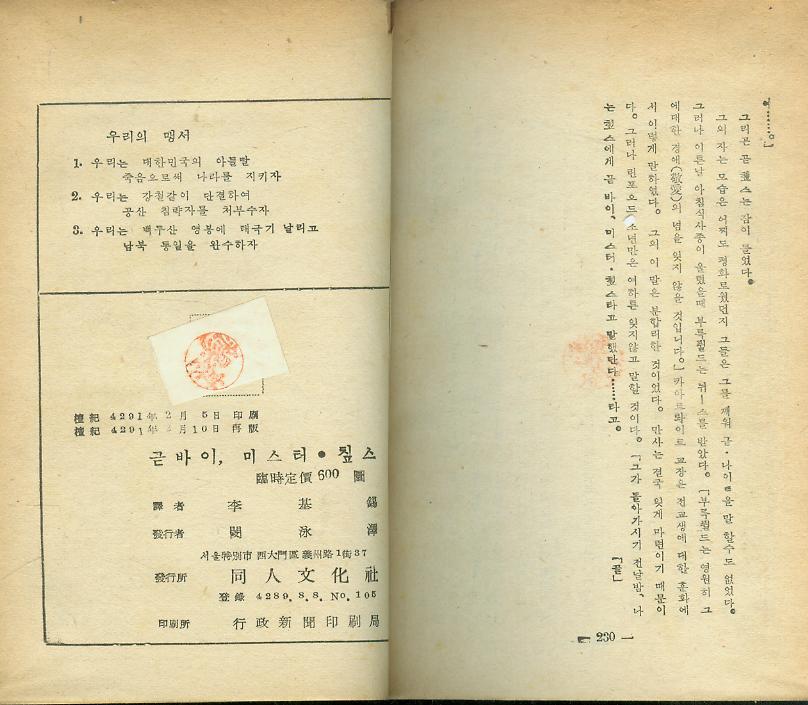 여……。」
그리곤 곧 칩스는 잠이 들었다。
그의 자는 모습은 어찌도 평화로웠던지 그들은 그를 깨워 굳·나이 을 말할수도 없었다。
그러나 이튿날 아침식사종이 울렸을때 부룩필드는 뉴ー스를 받았다。「부룩필드는 영원히 그
에대한 경애(敬愛)의 념을 잊지 않을 것입니다。」카아트롸이트 교장은 전교생에 대한 훈화에
서 이렇게 말하였다。 그의 이 말은 분합리한 것이었다。 만사는 결국 잊게 마련이기 때문이
다。 그러나 린포오드 소년만은 여하튼 잊지않고 말할 것이다。「그가 돌아가시기 전날밤、나
는 칩스에게 굳바이、미스터·칩스라고 말했단다……라고。
「끝」
— 230 —
우리의 맹서
1. 우리는 대한민국의 아들딸
죽음으로써 나라를 지키자
2. 우리는 강철같이 단결하여
공산 침략자를 처부수자
3. 우리는 백두산 영봉에 태국기 날리고
남북 통일을 완수하자
檀紀 4291年 2月 5日 印刷
檀紀 4291年 月10日 再版
굳바이, 미스터•칲스
臨時定價 600 圜
譯者 李基錫
發行者 閔泳澤
서울特別市 西大門區 義州路1街37
發行所 同人文化社
登錄 4289.8.8. No.105
印刷所 行政新聞印刷局